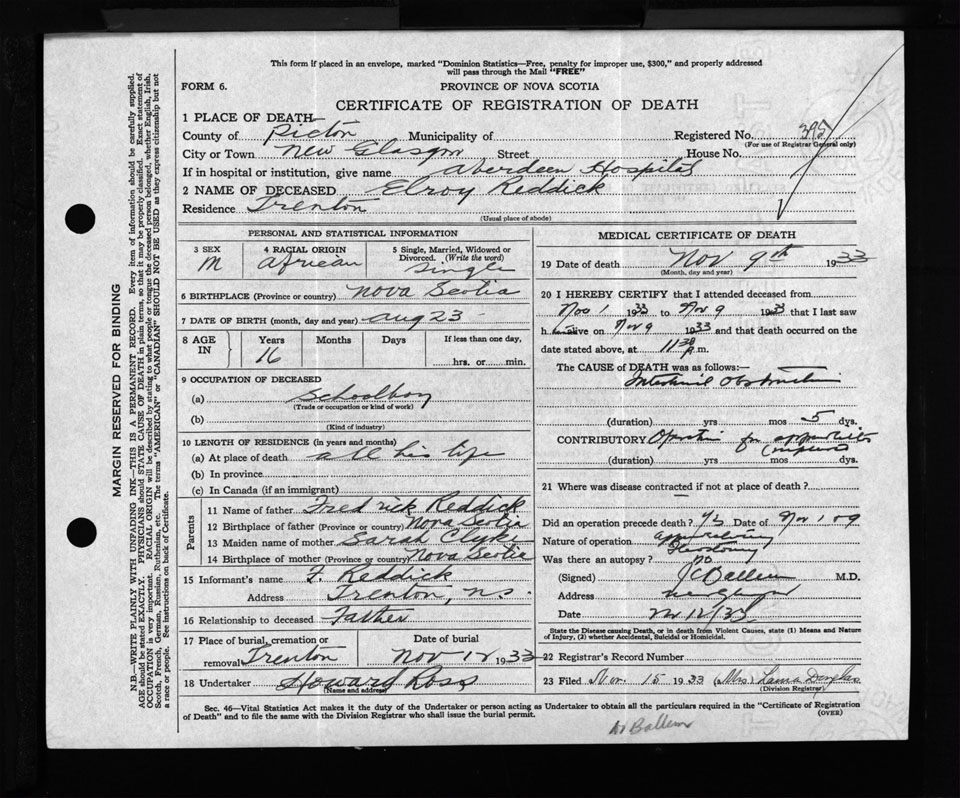 This form if placed in an envelope, marked "Dominion Statistics—Free, penalty for improper use, $300," and properly addressed
will pass through the Mail "FREE"
FORM 6. PROVINCE OF NOVA SCOTIA
CERTIFICATE OF REGISTRATION OF DEATH
1 PLACE OF DEATH—
County of Pictou Municipality of Registered No. 395
(For use of Registrar General only)
City or Town New Glasgow Street House No.
If in hospital or institution, give name Aberdeen Hospital
2 NAME OF DECEASED Elroy Reddick
Residence Trenton
(Usual place of abode)
PERSONAL AND STATISTICAL INFORMATION
3 SEX 4 RACIAL ORIGIN 5 Single, Married, Widowed or
Divorced. (Write the word)
M African Single
6 BIRTHPLACE (Province or country) Nova Scotia
7 DATE OF BIRTH (month, day and year) Aug 23
8 AGE IN Years Months Days If less than one day,
16 hrs. or min.
9 OCCUPATION OF DECEASED
(a) Schoolboy
(Trade or occupation or kind of work)
(b)
(Kind of industry)
10 LENGTH OF RESIDENCE (in years and months)
(a) At place of death all his life
(b) In province
(c) In Canada (if an immigrant)
Parents
11 Name of father Fredrick Reddick
12 Birthplace of father (Province or country) Nova Scotia
13 Maiden name of mother Sarah Clyke
14 Birthplace of mother (Province or country) Nova Scotia
15 Informant's name F. Reddick
Address Trenton, N.S.
16 Relationship to deceased Father
17 Place of burial, cremation or Date of burial
removal Trenton Nov 12 1933
18 Undertaker Howard Ross
(Name and address)
MEDICAL CERTIFICATE OF DEATH
19 Date of death Nov 9th 1933
(Month, day and year)
20 I HEREBY CERTIFY that I attended deceased from
Nov 1 1933 to Nov 9 1933 that I last saw
h im alive on Nov 9 1933 and that death occurred on the
date stated above, at 11 30 p.m.
The CAUSE of DEATH was as follows:—
Intestinal Obstruction
(duration) yrs mos 5 dys.
CONTRIBUTORY Operation for appendicitis
(duration) yrs mos dys.
21 Where was disease contracted if not at place of death?
Did an operation precede death? Yes Date of Nov 1 & 9
Nature of operation
Was there an autopsy? no
(Signed) M.D.
Address
Date Nov 12/33
State the Disease causing Death, or in death from Violent Causes, state (1) Means and Nature
of Injury, (2) whether Accidental, Suicidal or Homicidal.
22 Registrar's Record Number
23 Filed Nov. 15 1933 (Mrs) Douglas
(Division Registrar)
Sec. 46—Vital Statistics Act makes it the duty of the Undertaker or person acting as Undertaker to obtain all the particulars required in the "Certificate of Registration
of Death" and to file the same with the Division Registrar who shall issue the burial permit. (OVER)
MARGIN RESERVED FOR BINDING
N.B.—WRITE PLAINLY WITH UNFADING INK—THIS IS A PERMANENT RECORD. Every item of information should be carefully supplied.
AGE should be stated EXACTLY. PHYSICIANS should STATE CAUSE OF DEATH in plain terms, so that it may be properly classified. Exact statement of
OCCUPATION is very important. RACIAL ORIGIN will be described by stating to what people or tongue the deceased person belonged, whether English, Irish,
Scotch, French, German, Russian, Ruthenian, etc. The terms "AMERICAN" or "CANADIAN" SHOULD NOT BE USED as they express citizenship but not
a race or people. See instructions on back of Certificate.